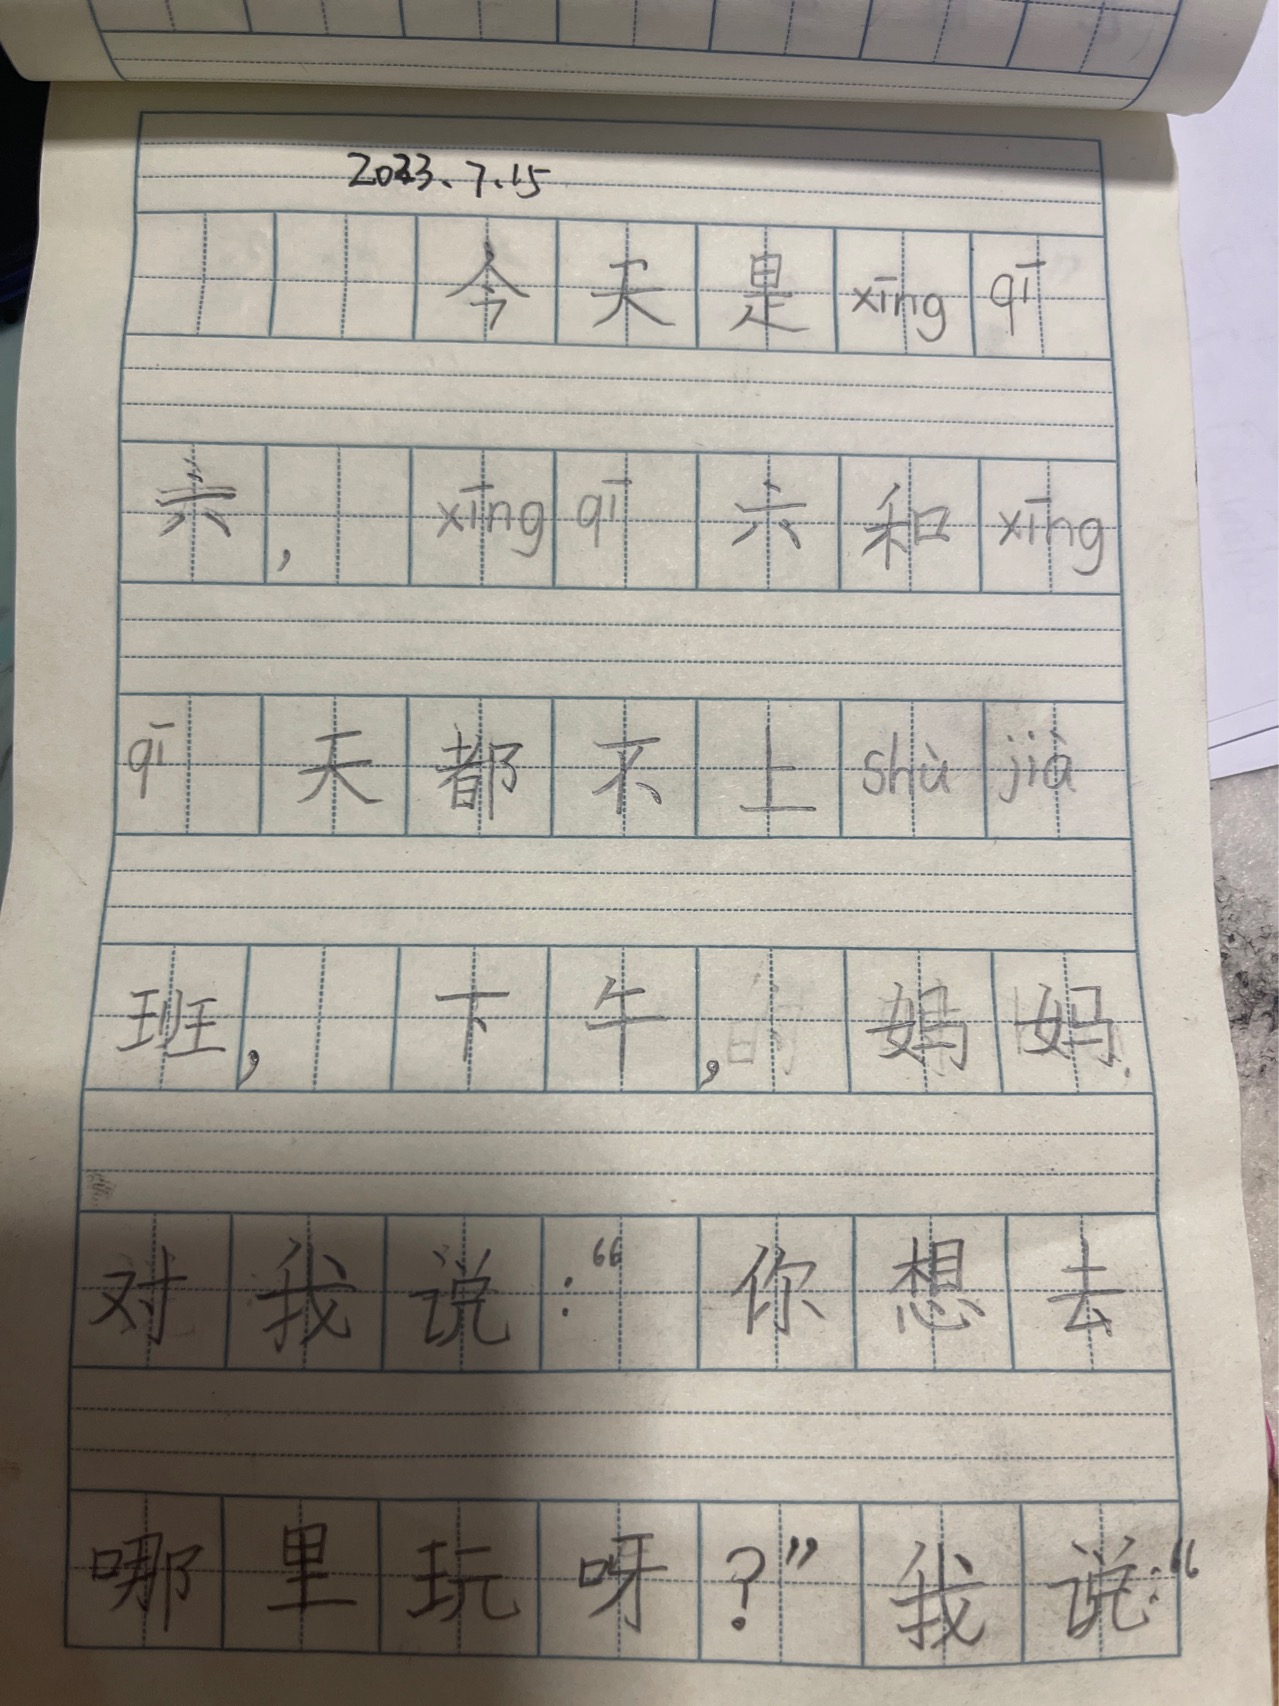 2023.7.15
今天是xīng qī
六, xīng qī 六和xīng
qī 天都不上shù jià
班, 下午,妈妈
对我说:“你想去
哪里玩呀?”我说:“